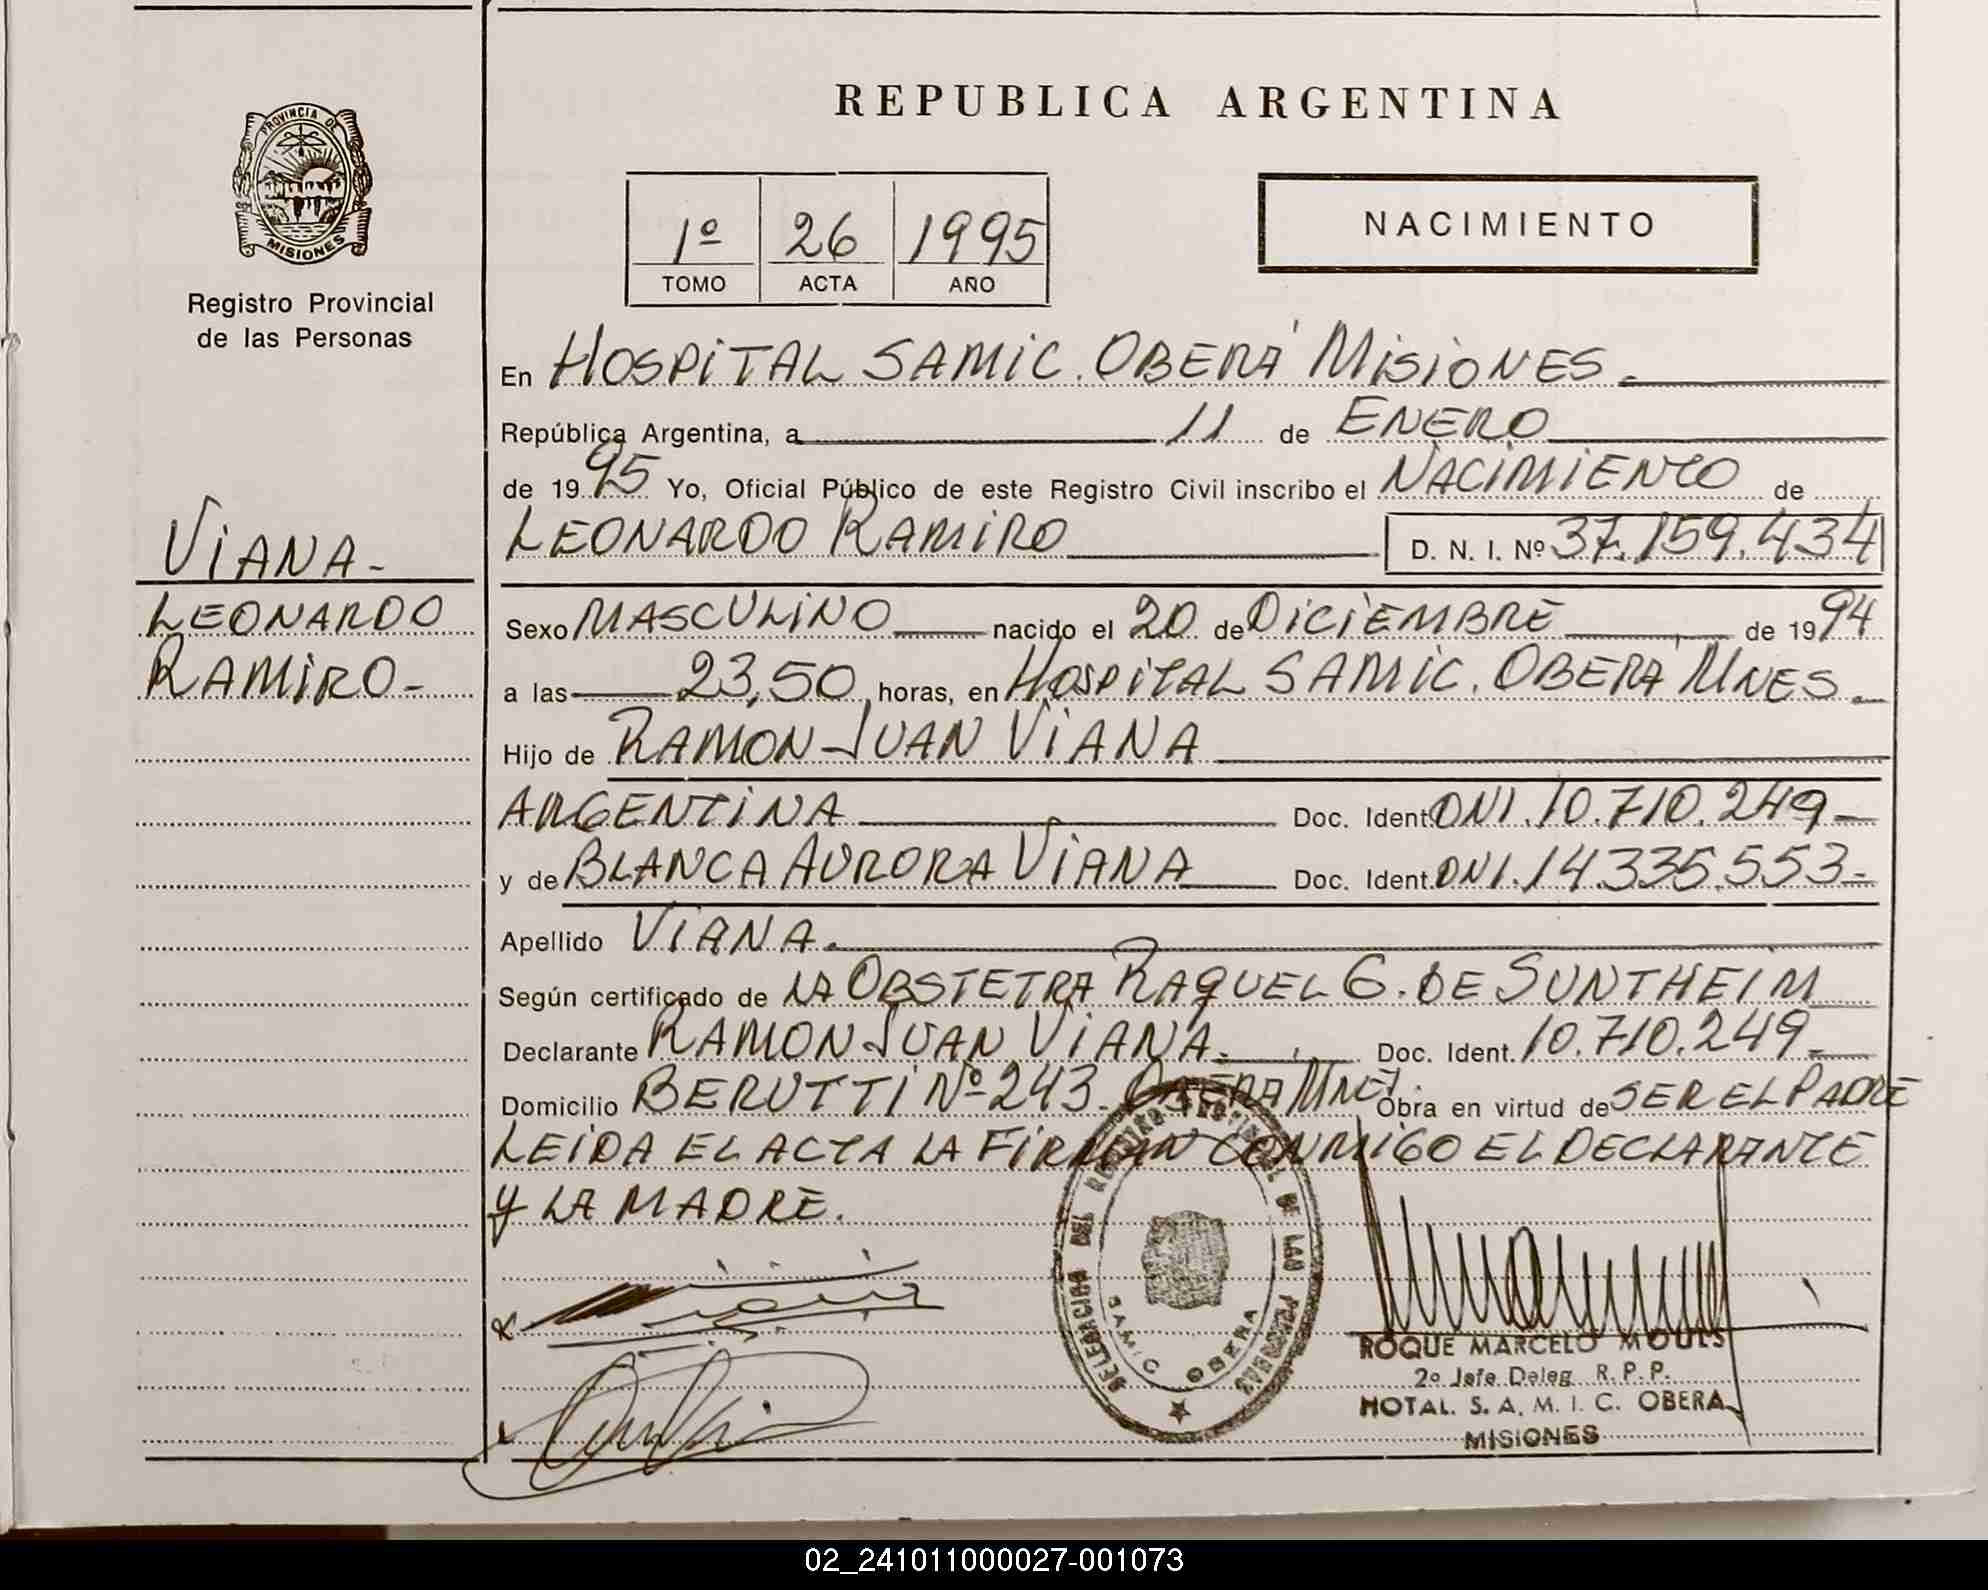 REPUBLICA ARGENTINA
PROVINCIA DE
MISIONES
Registro Provincial
de las Personas
1º 26 1995
TOMO ACTA AÑO
NACIMIENTO
En HOSPITAL SAMIC. OBERÁ MISIONES.
República Argentina, a 11 de ENERO
de 1995 Yo, Oficial Público de este Registro Civil inscribo el NACIMIENTO de
LEONARDO RAMIRO D. N. I. Nº 37.159.434
VIANA-
LEONARDO
RAMIRO-
Sexo MASCULINO nacido el 20 de DICIEMBRE de 1994
a las 23,50 horas, en HOSPITAL SAMIC. OBERÁ MNES.
Hijo de RAMON JUAN VIANA
ARGENTINA Doc. Ident. DNI.10.710.249-
y de BLANCA AURORA VIANA Doc. Ident. DNI.14.335.553-
Apellido VIANA.
Según certificado de LA OBSTETRA RAQUEL G. DE SUNTHEIM
Declarante RAMON JUAN VIANA. Doc. Ident. 10.710.249-
Domicilio BERUTTI Nº 243- OBERÁ MNES. Obra en virtud de SER EL PADRE
LEIDA EL ACTA LA FIRMAN CONMIGO EL DECLARANTE
Y LA MADRE.
DELEGACION DEL REGISTRO PROVINCIAL DE LAS PERSONAS
SAMIC OBERA
ROQUE MARCELO MOULS
2º Jefe Deleg. R. P. P.
HOTAL. S. A. M. I. C. OBERA
MISIONES
02_241011000027-001073